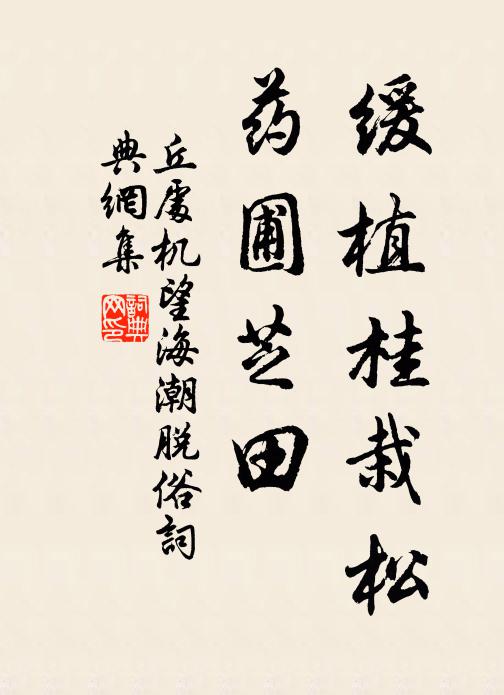 缓植桂栽松
药圃芝田
丘處机望海潮脱俗詞
典網集
詞典网印